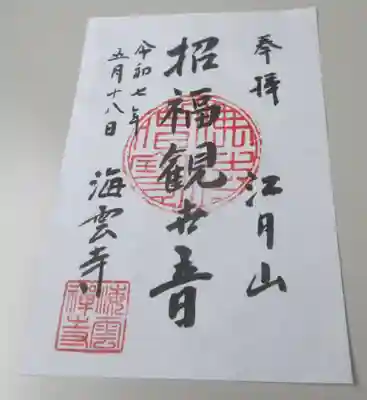 奉拝 江月山
招福観世音
令和七年
五月十八日
海雲寺
海雲
禅寺